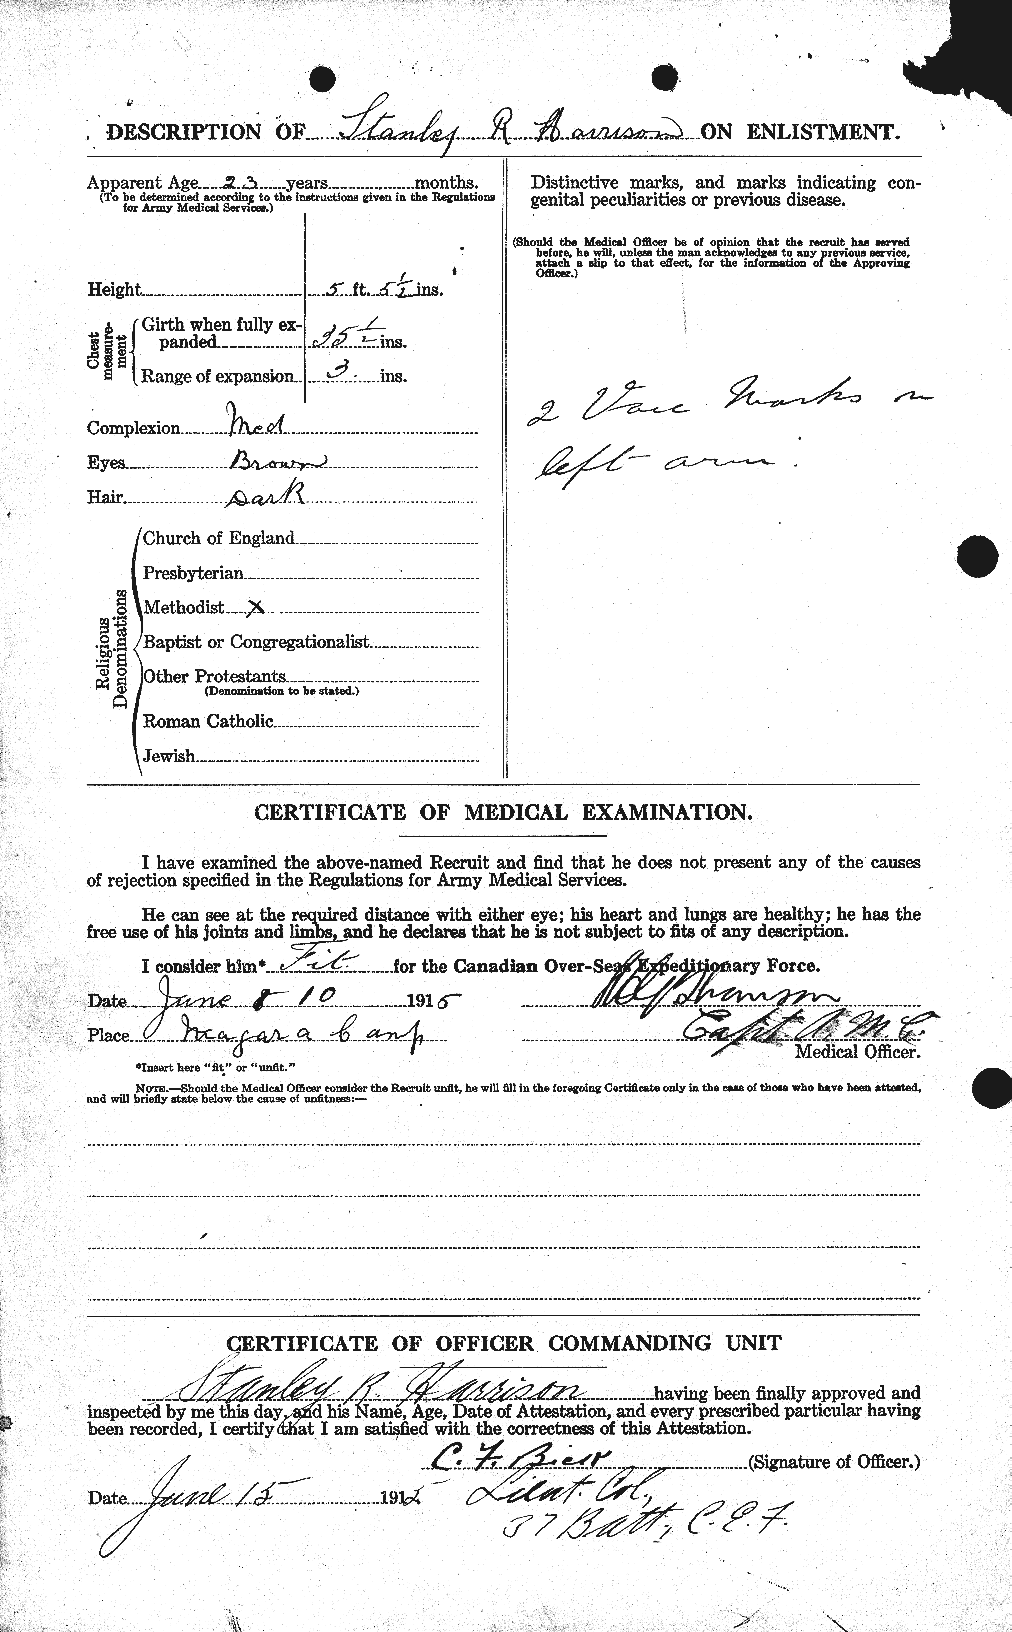 DESCRIPTION OF Stanley R Harrison ON ENLISTMENT.
Apparent Age 23 years months.
(To be determined according to the instructions given in the Regulations
for Army Medical Services.)
Height 5 ft. 5½ ins.
Chest measure-ment
Girth when fully ex-
panded 35½ ins.
Range of expansion 3 ins.
Complexion Med
Eyes Brown
Hair Dark
Religious Denominations
Church of England
Presbyterian
Methodist X
Baptist or Congregationalist
Other Protestants
(Denomination to be stated.)
Roman Catholic
Jewish
Distinctive marks, and marks indicating con-
genital peculiarities or previous disease.
(Should the Medical Officer be of opinion that the recruit has served
before, he will, unless the man acknowledges to any previous service,
attach a slip to that effect, for the information of the Approving
Officer.)
2 Vacc Marks on
left arm.
CERTIFICATE OF MEDICAL EXAMINATION.
I have examined the above-named Recruit and find that he does not present any of the causes
of rejection specified in the Regulations for Army Medical Services.
He can see at the required distance with either eye; his heart and lungs are healthy; he has the
free use of his joints and limbs, and he declares that he is not subject to fits of any description.
I consider him* Fit. for the Canadian Over-Seas Expeditionary Force.
Date June 10 1915
Place Niagara Camp
Capt. A.M.C.
Medical Officer.
*Insert here "fit" or "unfit."
NOTE.—Should the Medical Officer consider the Recruit unfit, he will fill in the foregoing Certificate only in the case of those who have been attested,
and will briefly state below the cause of unfitness:—
CERTIFICATE OF OFFICER COMMANDING UNIT
Stanley R. Harrison having been finally approved and
inspected by me this day, and his Name, Age, Date of Attestation, and every prescribed particular having
been recorded, I certify that I am satisfied with the correctness of this Attestation.
C. F. Bick (Signature of Officer.)
Date June 15 1915 Lieut. Col.,
37 Batt., C.E.F.